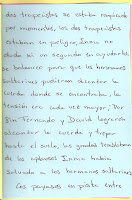 dos trapecistas se estaba rompiendo
por momentos, los dos trapecistas
estaban en peligro, Inma no
dudó ni un segundo en ayudarles,
se balanceó para que los hermanos
saltarines pudieran alcanzar la
cuerda donde se encontraba, la
tensión era cada vez mayor. Por
fin Fernando y David lograron
alcanzar la cuerda y trepar
hasta el suelo, las gradas temblaban
de los aplausos Inma había
salvado a los hermanos saltarines.
Los payasos en pista entre